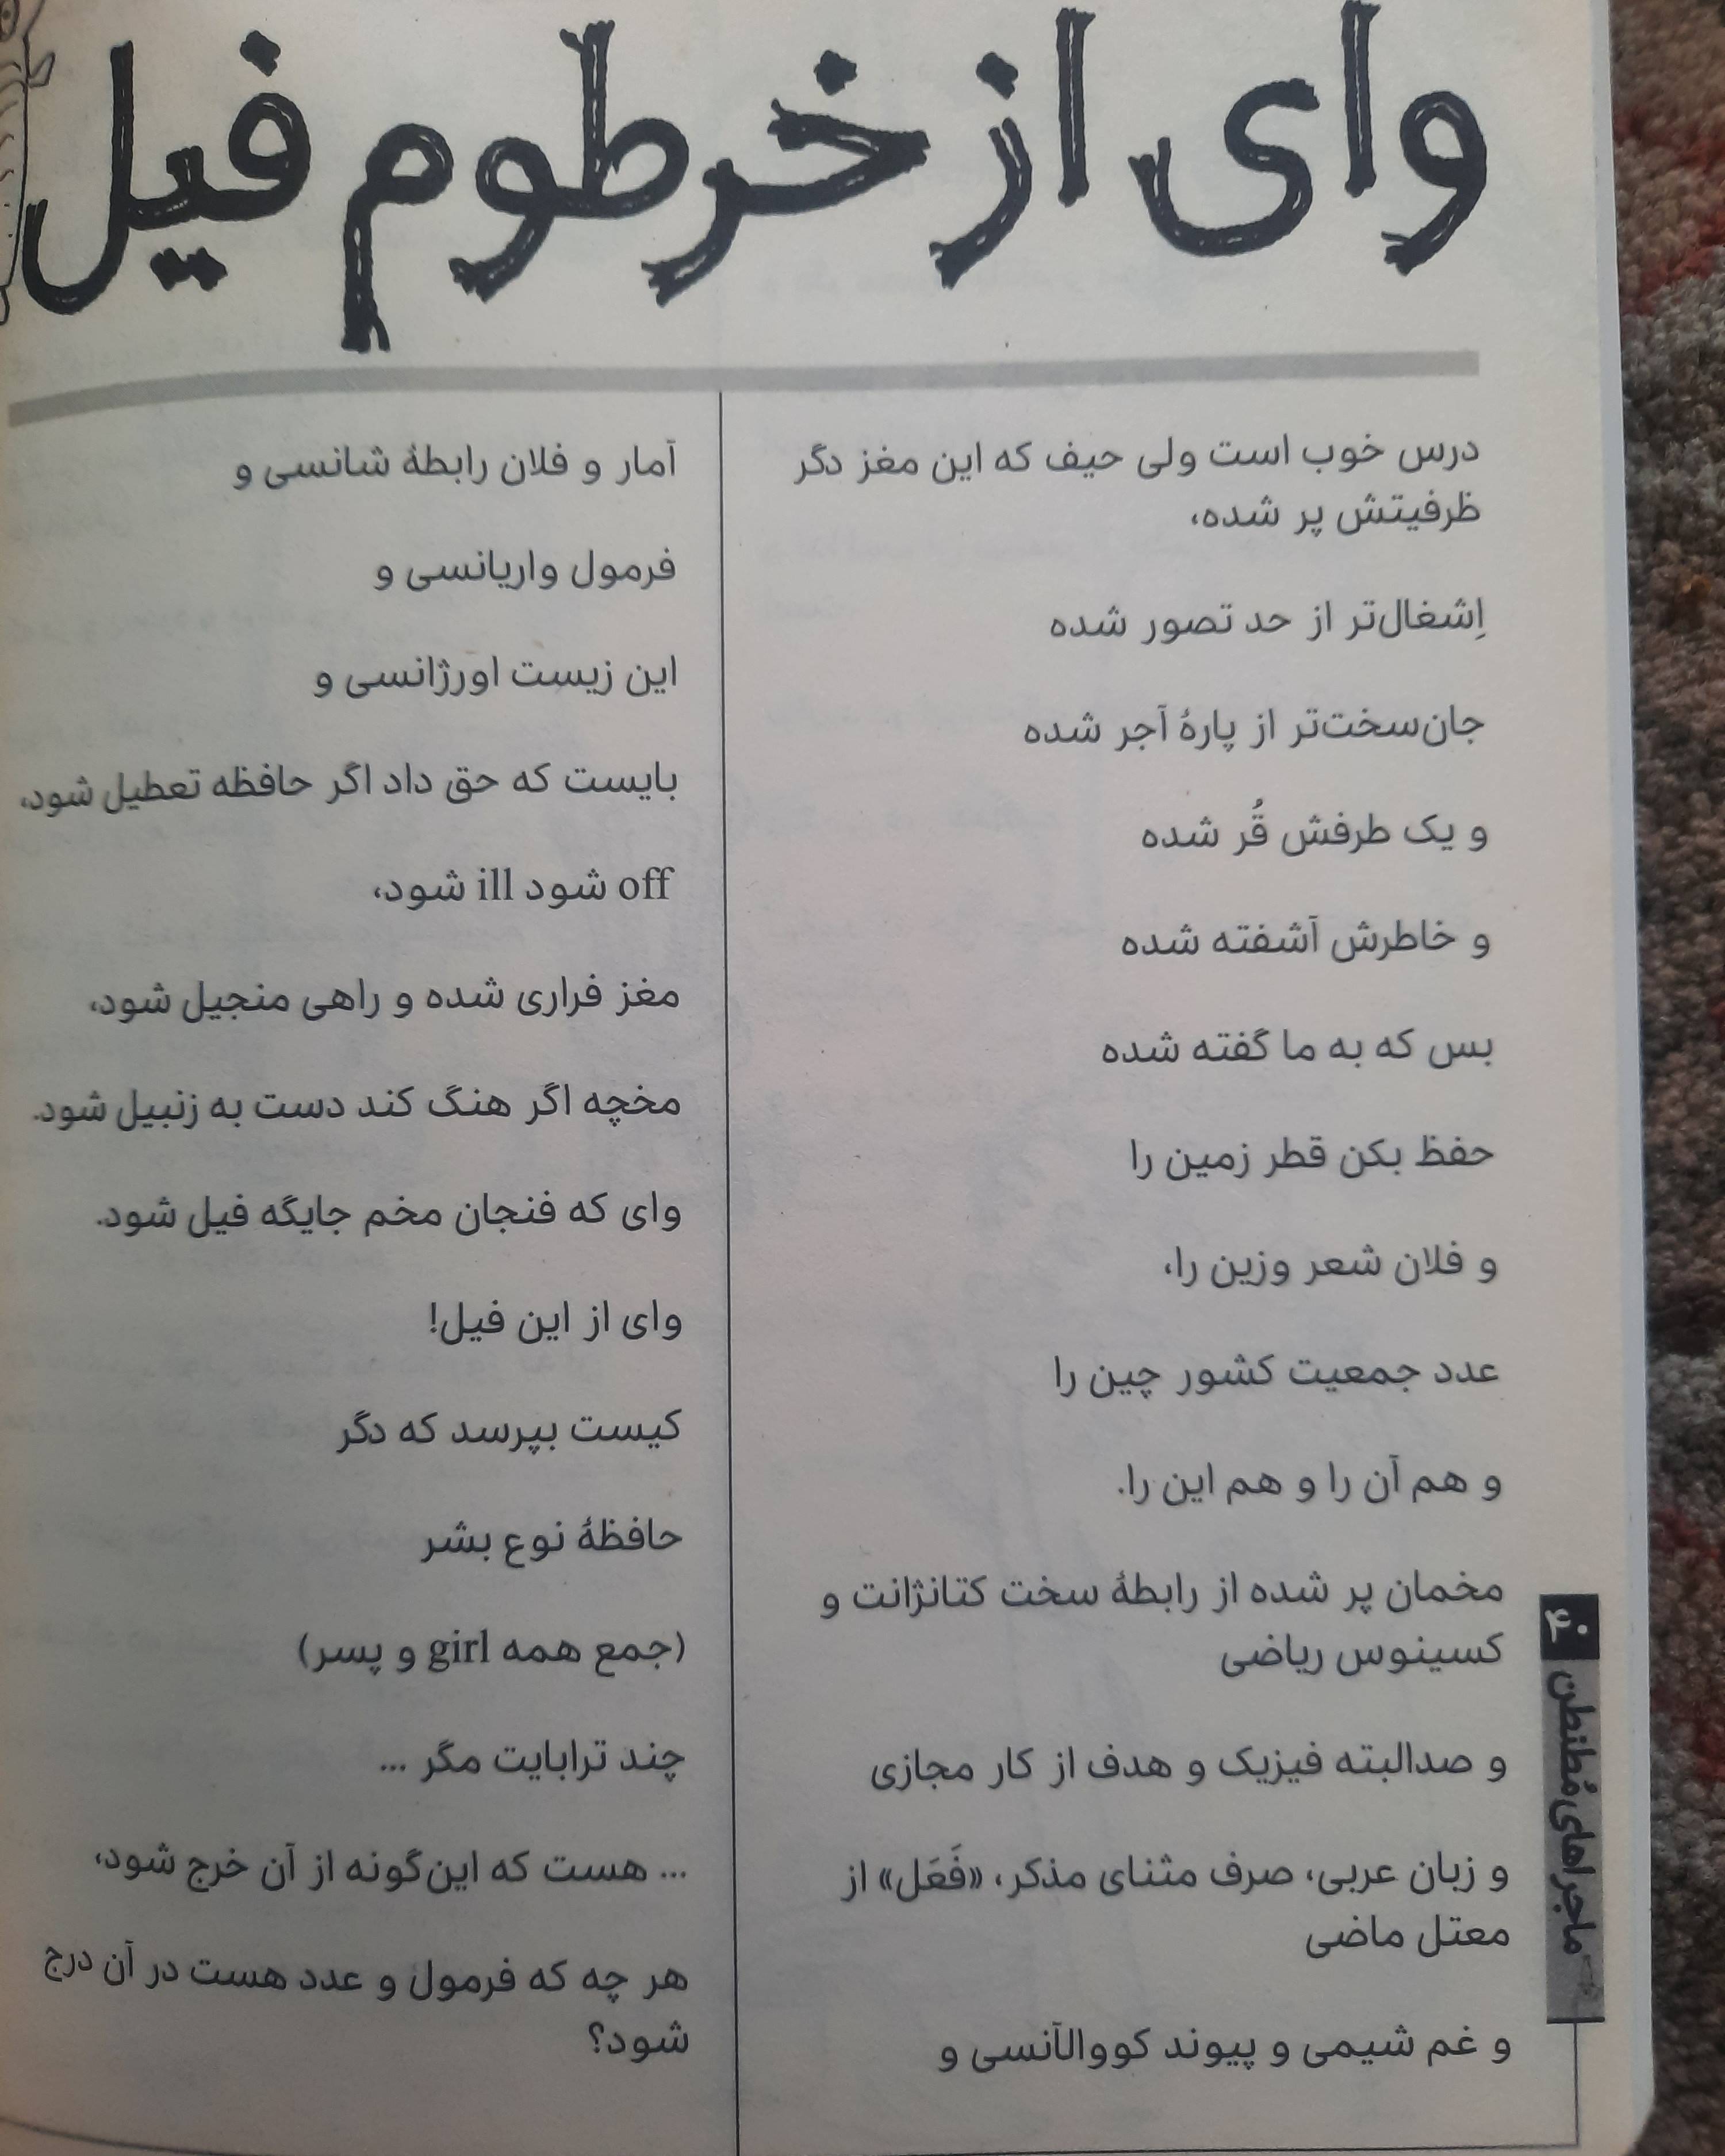 وای از خرطوم فیل
درس خوب است ولی حیف که این مغز دگر
ظرفیتش پر شده،
اِشغال‌تر از حد تصور شده
جان‌سخت‌تر از پارهٔ آجر شده
و یک طرفش قُر شده
و خاطرش آشفته شده
بس که به ما گفته شده
حفظ بکن قطر زمین را
و فلان شعر وزین را،
عدد جمعیت کشور چین را
و هم آن را و هم این را.
مخمان پر شده از رابطهٔ سخت کتانژانت و
کسینوس ریاضی
و صدالبته فیزیک و هدف از کار مجازی
و زبان عربی، صرف مثنای مذکر، «فَعَل» از
معتل ماضی
و غم شیمی و پیوند کووالآنسی و
آمار و فلان رابطهٔ شانسی و
فرمول واریانسی و
این زیست اورژانسی و
بایست که حق داد اگر حافظه تعطیل شود،
off شود ill شود،
مغز فراری شده و راهی منجیل شود،
مخچه اگر هنگ کند دست به زنبیل شود.
وای که فنجان مخم جایگه فیل شود.
وای از این فیل!
کیست بپرسد که دگر
حافظهٔ نوع بشر
(جمع همه girl و پسر)
چند ترابایت مگر ...
... هست که این‌گونه از آن خرج شود،
هر چه که فرمول و عدد هست در آن درج
شود؟
۴۰
ماجراهای مُطنطن